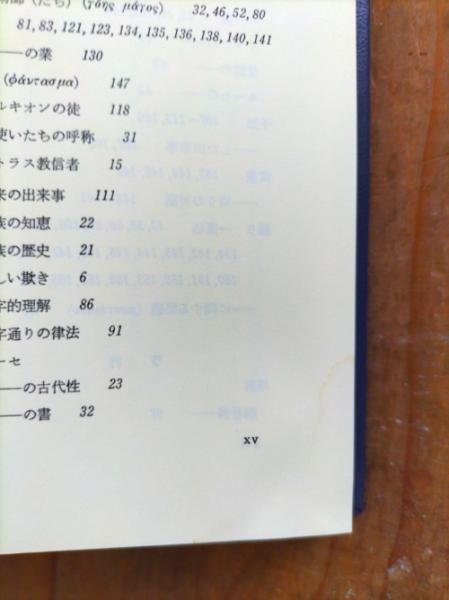 術師（たち）(γόης μάγος) 32, 46, 52, 80
81, 83, 121, 123, 134, 135, 136, 138, 140, 141
――の業 130
(φάντασμα) 147
ルキオンの徒 118
使いたちの呼称 31
トラス教信者 15
来の出来事 111
族の知恵 22
族の歴史 21
しい欺き 6
字的理解 86
字通りの律法 91
ーセ
――の古代性 23
――の書 32
xv